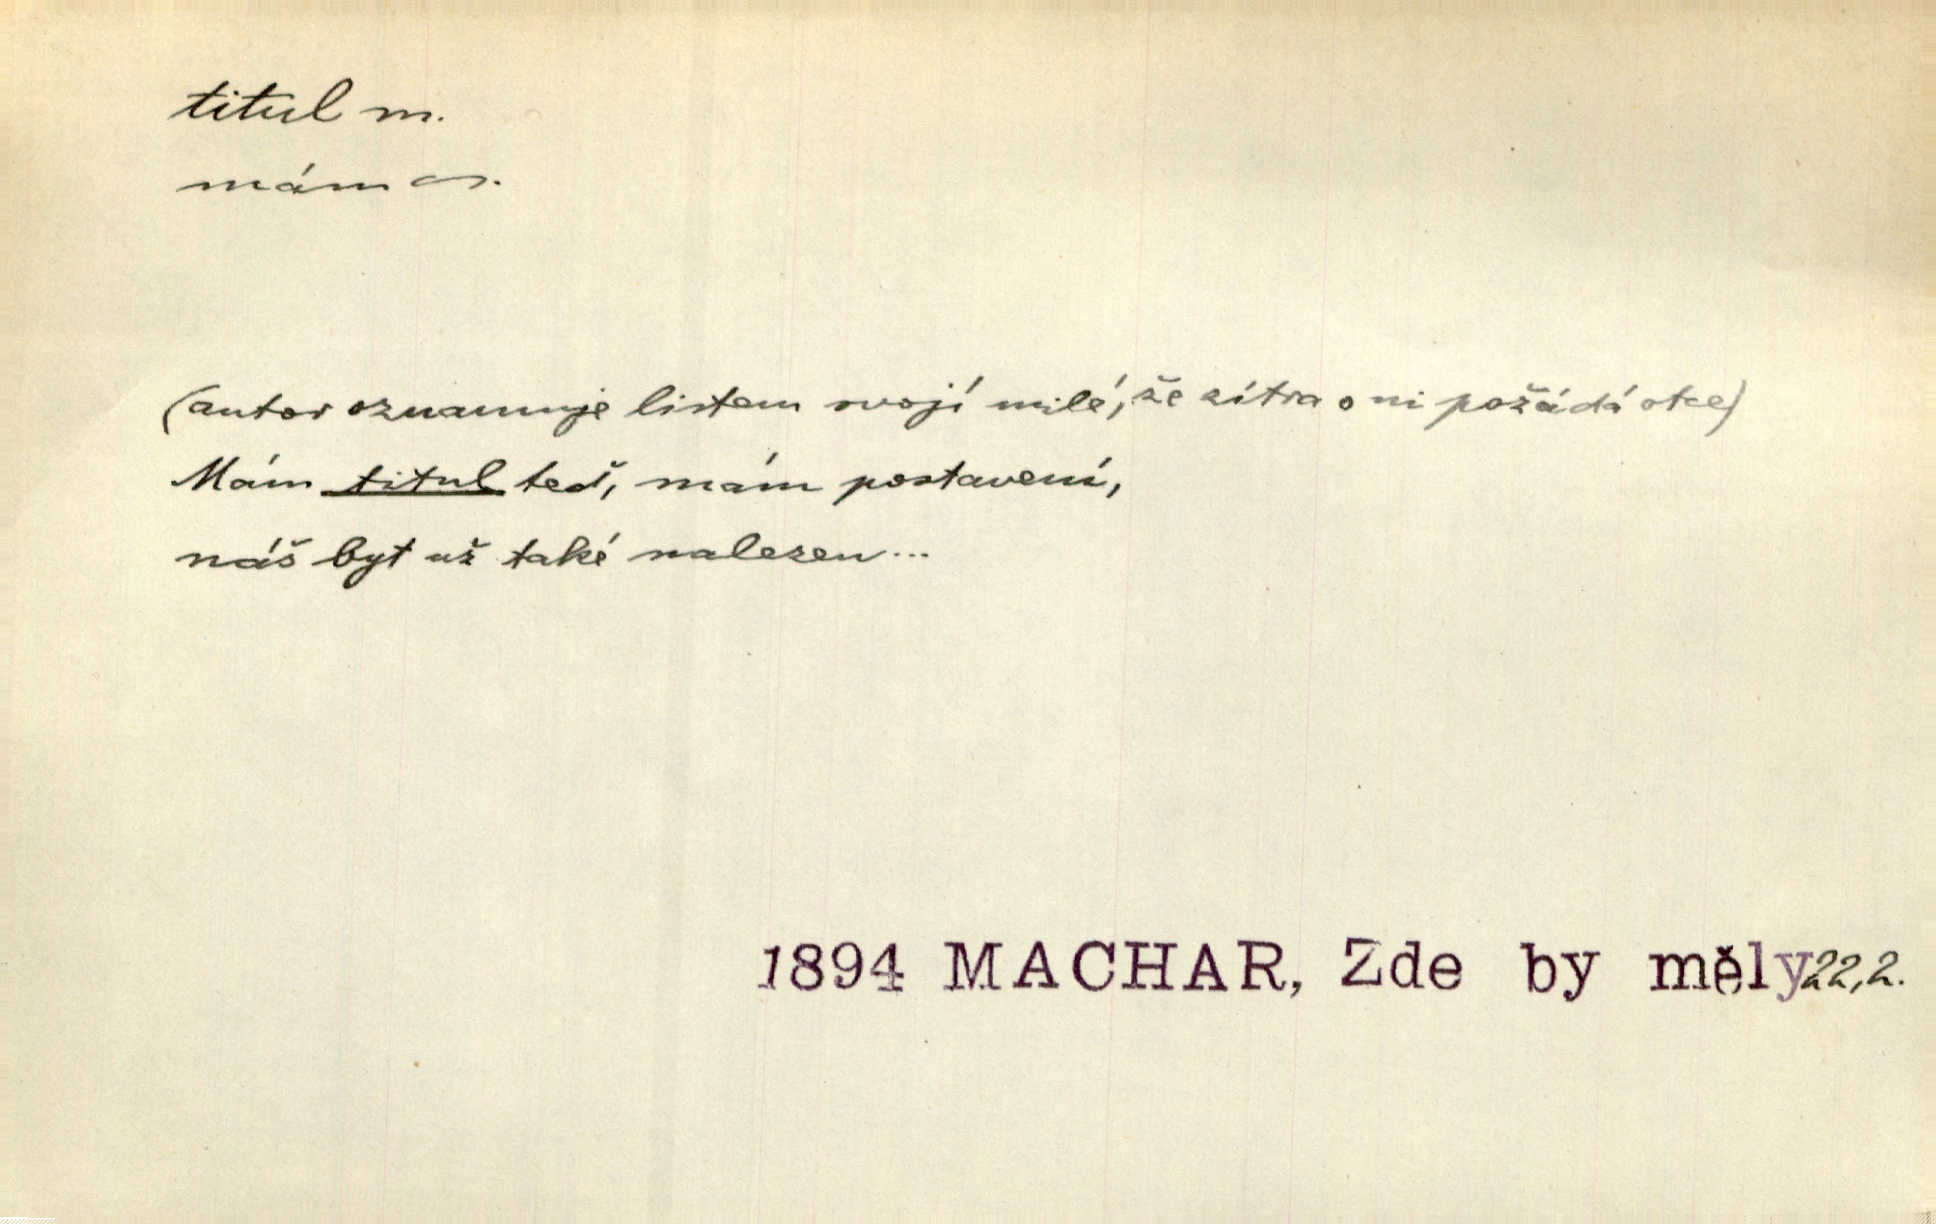 titul m.
mám ~.
(autor oznamuje listem svojí milé, že zítra o ni požádá otce)
Mám titul teď, mám postavení,
náš byt už také nalezen...
1894 MACHAR, Zde by měly 22,2.